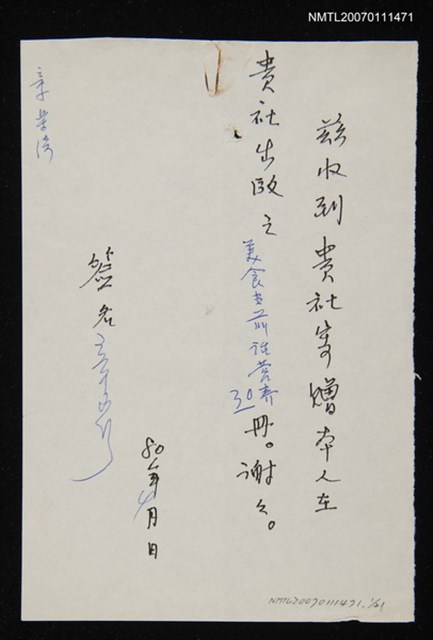 NMTL20070111471
茲收到貴社寄贈本人在
貴社出版之美食當前話營養30冊。謝々。
簽名
80年4月 日
章樂綺
NMTL20070111471.1/61